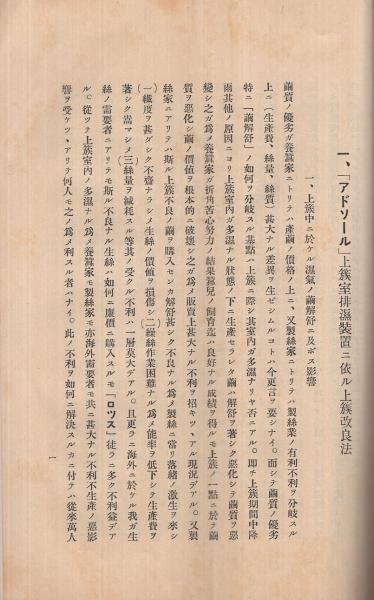 一、「アドソール」上蔟室排濕裝置ニ依ル上蔟改良法
一、上蔟中ニ於ケル濕氣ノ繭解舒ニ及ボス影響
繭質ノ優劣ガ養蠶家ニトリテハ產繭ノ價格ノ上ニ、又製絲家ニトリテハ製絲業ノ有利不利ヲ分岐スル
上ニ(生產費、絲量、絲質)甚大ナル差異ヲ生ゼシムルコトハ今更言ヲ要シナイ。而シテ繭質ノ優劣
特ニ「繭解舒」ノ如何ヲ分岐スル基點ハ上蔟ニ際シ其室內ガ多濕ナリヤ否ニアル。卽チ上蔟期間中降
雨其他ノ原因ニヨリ上蔟室內ガ多濕ナル狀態ノ下ニ生產セラレタ繭ハ解舒ヲ著シク惡化シテ繭質ヲ惡
變シ之ガ爲メ養蠶家ガ折角苦心努力ノ結果蠶兒ノ飼育迄ハ良好ナル成績ヲ得ルモ上蔟ノ一點ニ於テ繭
質ヲ惡化シ繭ノ價値ヲ根本的ニ破壞シ之ガ爲メ販賣上甚大ナル不利ヲ招キツヽアル現況デアル。又製
絲家ニアリテハ斯ル上蔟不良ノ繭ヲ購入センカ解舒甚シク不良ナル爲メ製絲ニ當リ落緖ノ激生ヲ來シ
(一)纖度ヲ甚ダシク不齊ナラシメ生絲ノ價値ヲ損傷シ(二)繰絲作業困難ナル爲メ能率ヲ低下シテ生產費ヲ
著シク嵩マシメ(三)絲量ヲ減耗スル等其ノ受クル不利ハ一層莫大デアル。且更ラニ海外ニ於ケル我ガ生
絲ノ需要者ニアリテモ斯ル不良ナル生絲ハ如何ニ廉價ニ購入スルモ「ロツス」徒ラニ多ク不利益デア
ル。從ツテ上蔟室內ノ多濕ナル爲メ養蠶家モ製絲家モ亦海外需要者モ共ニ甚大ナル不利不生產ノ惡影
響ヲ受ケツヽアリテ何人モ之ノ爲メ利スル者ハナイ。此ノ不利ヲ如何ニ解決スルカニ付テハ從來萬人
一